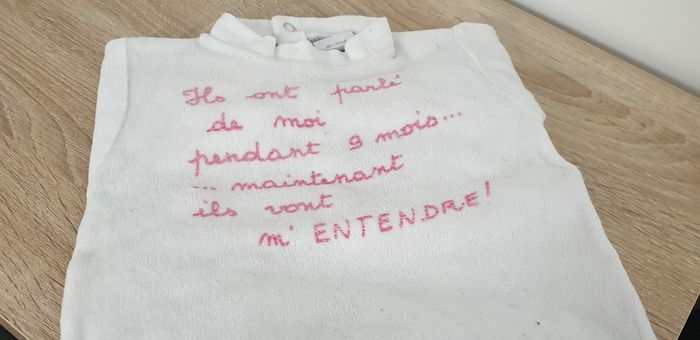 Ils ont parlé
de moi
pendant 9 mois...
... maintenant
ils vont
m' ENTENDRE!